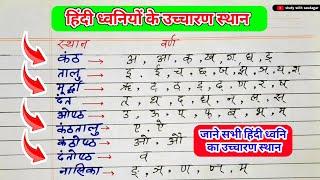 study with saursagar
हिंदी ध्वनियों के उच्चारण स्थान
स्थान वर्ण
कंठ → अ, आ, क, ख, ग, घ, ह
तालु → इ, ई, च, छ, ज, झ, ञ, य, श
मूर्द्धा → ऋ, ट, ठ, ड, ढ, ण, र, ष
दंत → त, थ, द, ध, न, ल, स
ओष्ठ → उ, ऊ, प, फ, ब, भ, म
कंठतालु → ए, ऐ
कंठोष्ठ → ओ, औ
दंतोष्ठ → व
नासिका → ङ, ञ, ण, न, म
जाने सभी हिंदी ध्वनि
का उच्चारण स्थान